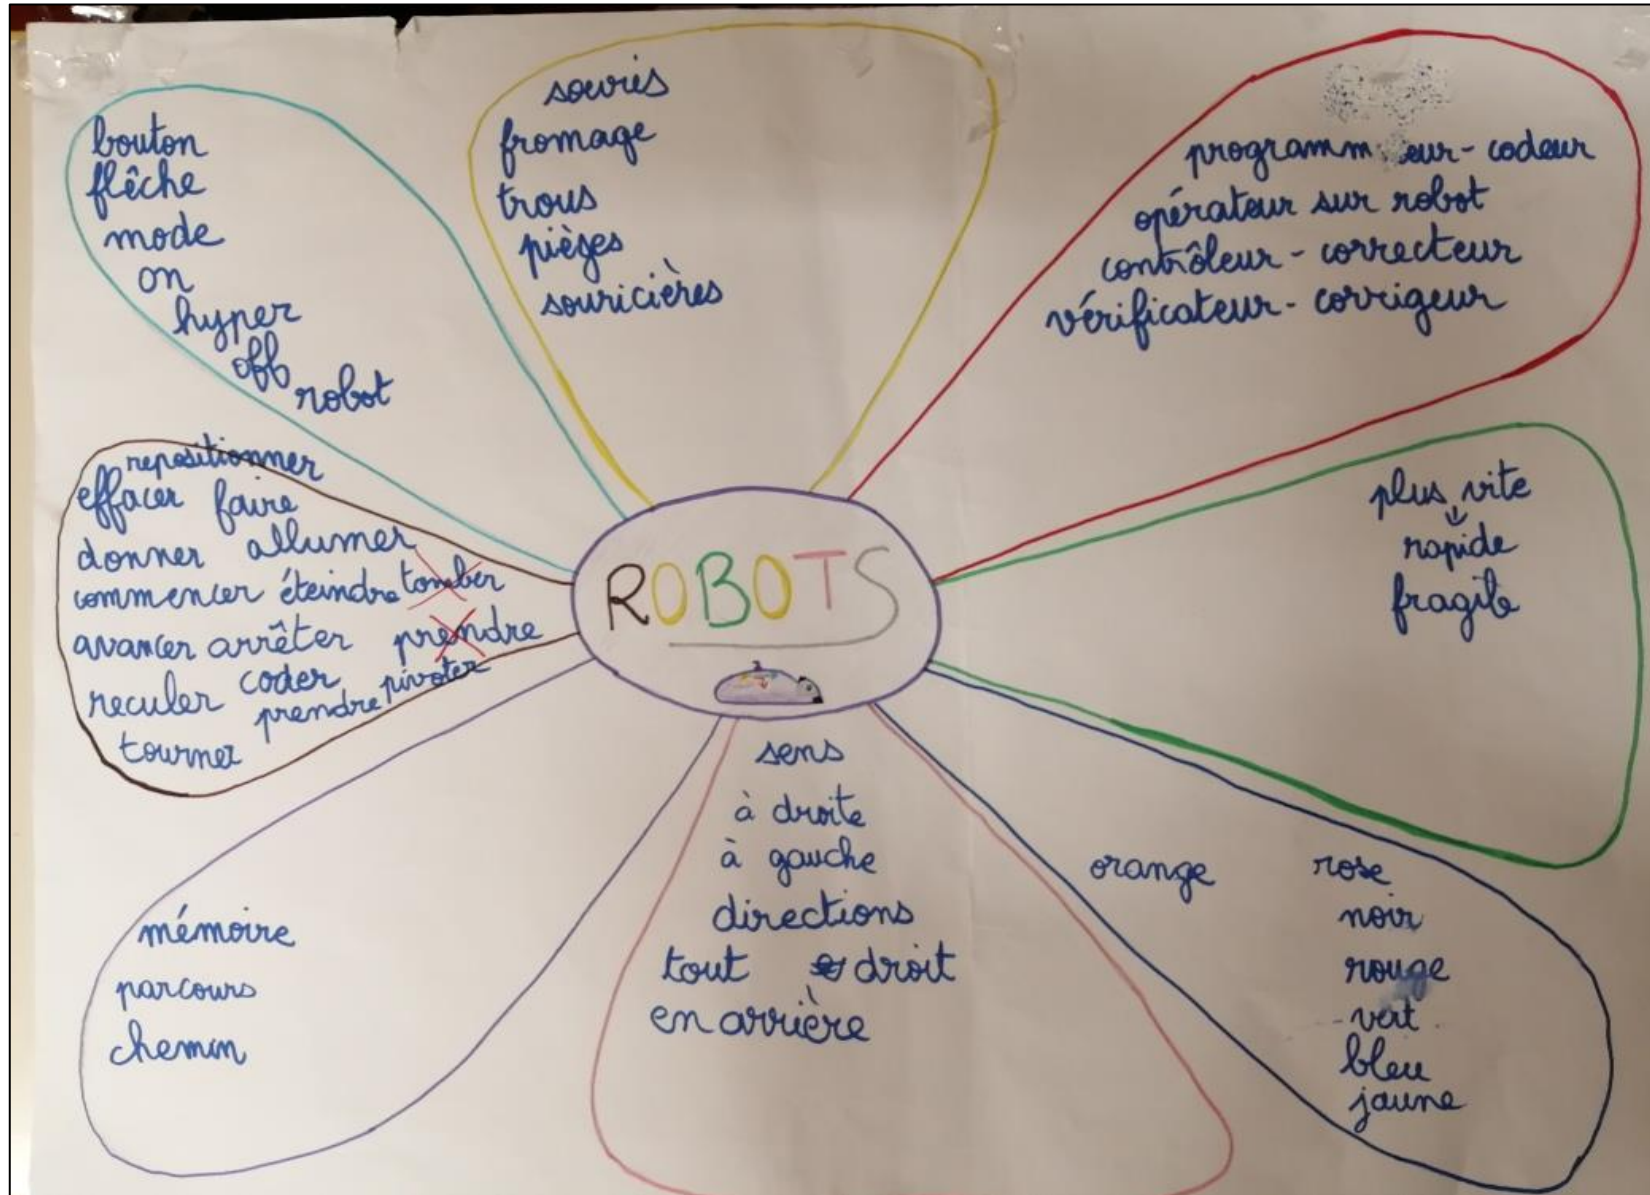 bouton
flêche
mode
on
hyper
off
robot
souris
fromage
trous
pièges
souricières
programm eur - codeur
opérateur sur robot
contrôleur - correcteur
vérificateur - corrigeur
repositionner
effacer faire
donner allumer
commencer éteindre tomber
avancer arrêter prendre
reculer coder pivoter
prendre
tourner
ROBOTS
plus vite
rapide
fragile
mémoire
parcours
chemin
sens
à droite
à gauche
directions
tout droit
en arrière
orange rose
noir
rouge
vert
bleu
jaune